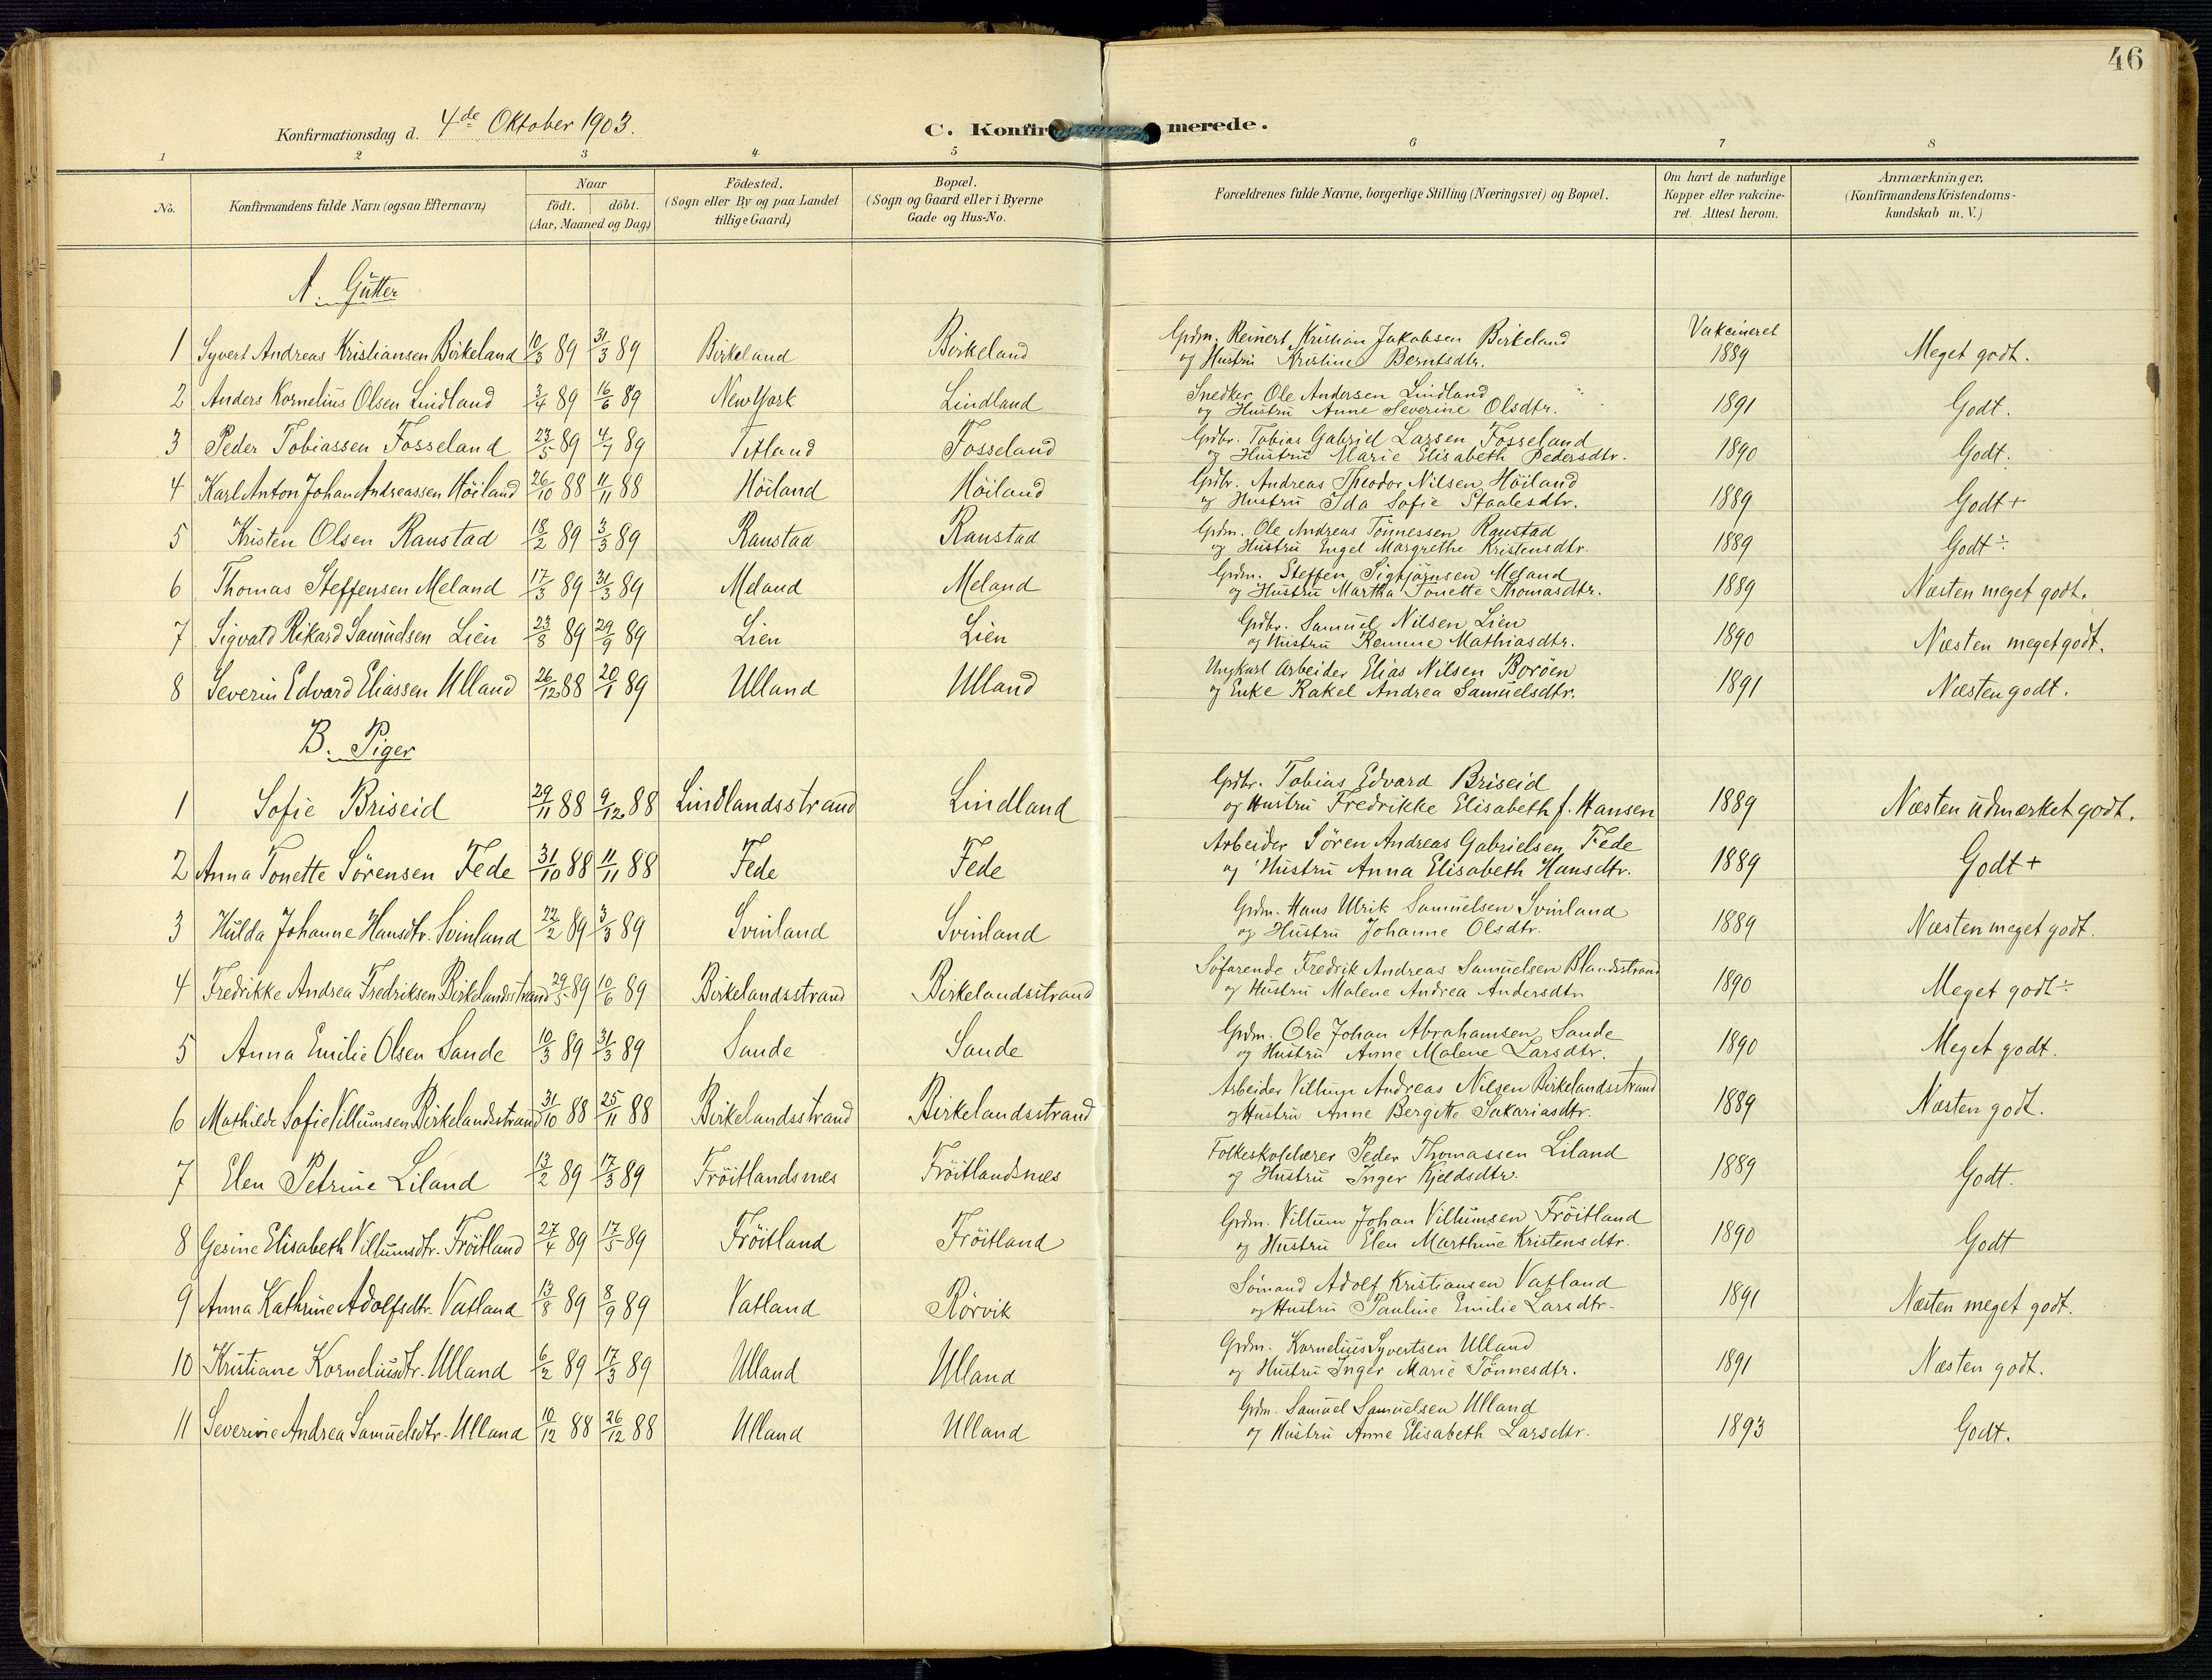 46
Konfirmationsdag d. 4de Oktober 1903.
C. Konfirmerede.
1 2 3 4 5 6 7 8
No. Konfirmandens fulde Navn (ogsaa Efternavn) Naar födt. döbt. (Aar, Maaned og Dag) Födested. (Sogn eller By og paa Landet tillige Gaard) Bopæl. (Sogn og Gaard eller i Byerne Gade og Hus-No. Forældrenes fulde Navne, borgerlige Stilling (Næringsvei) og Bopæl. Om havt de naturlige Kopper eller vakcineret. Attest herom. Anmærkninger, (Konfirmandens Kristendomskundskab m. V.)
A. Gutter
1 Syvert Andreas Kristiansen Birkeland 10/3 89 31/3 89 Birkeland Birkeland Grdm. Reinert Kristian Jakobsen Birkeland og Hustru Kristine Berntsdtr. Vakcineret 1889 Meget godt.
2 Anders Kornelius Olsen Lindland 3/4 89 16/6 89 New York Lindland Snedker Ole Andersen Lindland og Hustru Anne Severine Olsdtr. 1891 Godt.
3 Peder Tobiassen Fosseland 23/5 89 4/7 89 Titland Fosseland Grdbr. Tobias Gabriel Larsen Fosseland og Hustru Marie Elisabeth Pedersdtr. 1890 Godt.
4 Karl Anton Johan Andreassen Höiland 26/10 88 11/11 88 Höiland Höiland Grdbr. Andreas Theodor Nilsen Höiland og Hustru Ida Sofie Staalesdtr. 1889 Godt +
5 Kristen Olsen Raustad 18/2 89 3/3 89 Raustad Raustad Grdm. Ole Andreas Tönnessen Raustad og Hustru Engel Margrethe Kristensdtr. 1889 Godt ÷
6 Thomas Steffensen Meland 17/3 89 31/3 89 Meland Meland Grdm. Steffen Sigbjörnsen Meland og Hustru Martha Tonette Thomasdtr. 1889 Næsten meget godt.
7 Sigvald Rikard Samuelsen Lien 23/8 89 29/9 89 Lien Lien Grdbr. Samuel Nilsen Lien og Hustru Remine Mathiasdtr. 1890 Næsten meget godt.
8 Severin Edvard Eliassen Ulland 26/12 88 20/1 89 Ulland Ulland Ungkarl Arbeider Elias Nilsen Boröen og Enke Rakel Andrea Samuelsdtr. 1891 Næsten godt.
B. Piger
1 Sofie Briseid 29/11 88 9/12 88 Lindlandsstrand Lindland Grdbr. Tobias Edvard Briseid og Hustru Fredrikke Elisabeth f. Hansen 1889 Næsten udmærket godt.
2 Anna Tonette Sörensen Fede 31/10 88 11/11 88 Fede Fede Arbeider Sören Andreas Gabrielsen Fede og Hustru Anna Elisabeth Hansdtr. 1889 Godt +
3 Hulda Johanne Hansdtr. Svinland 22/2 89 3/3 89 Svinland Svinland Grdm. Hans Ulrik Samuelsen Svinland og Hustru Johanne Olsdtr. 1889 Næsten meget godt.
4 Fredrikke Andrea Fredriksen Birkelandsstrand 29/5 89 10/6 89 Birkelandsstrand Birkelandsstrand Söfarende Fredrik Andreas Samuelsen Blandsstrand og Hustru Malene Andrea Andersdtr 1890 Meget godt ÷
5 Anna Emilie Olsen Sande 10/3 89 31/3 89 Sande Sande Grdm. Ole Johan Abrahamsen Sande og Hustru Anne Malene Larsdtr. 1890 Meget godt.
6 Mathilde Sofie Villumsen Birkelandsstrand 31/10 88 25/11 88 Birkelandsstrand Birkelandsstrand Arbeider Villum Andreas Nilsen Birkelandsstrand og Hustru Anne Bergitte Sakariasdtr. 1889 Næsten godt.
7 Elen Petrine Liland 13/2 89 17/3 89 Fröitlandsnes Fröitlandsnes Folkeskolelærer Peder Thomassen Liland og Hustru Inger Kjeldsdtr. 1889 Godt.
8 Gesine Elisabeth Villumsdtr. Fröitland 27/4 89 17/5 89 Fröitland Fröitland Grdm. Villum Johan Villumsen Fröitland og Hustru Elen Marthine Kristensdtr. 1890 Godt
9 Anna Kathrine Adolfsdtr. Vatland 13/8 89 8/9 89 Vatland Rörvik Sömand Adolf Kristiansen Vatland og Hustru Pauline Emilie Larsdtr. 1891 Næsten meget godt.
10 Kristiane Korneliusdtr. Ulland 6/2 89 17/3 89 Ulland Ulland Grdm. Kornelius Syvertsen Ulland og Hustru Inger Marie Tönnesdtr. 1891 Næsten godt.
11 Severine Andrea Samuelsdtr. Ulland 10/12 88 26/12 88 Ulland Ulland Grdm. Samuel Samuelsen Ulland og Hustru Anne Elisabeth Larsdtr. 1893 Godt.